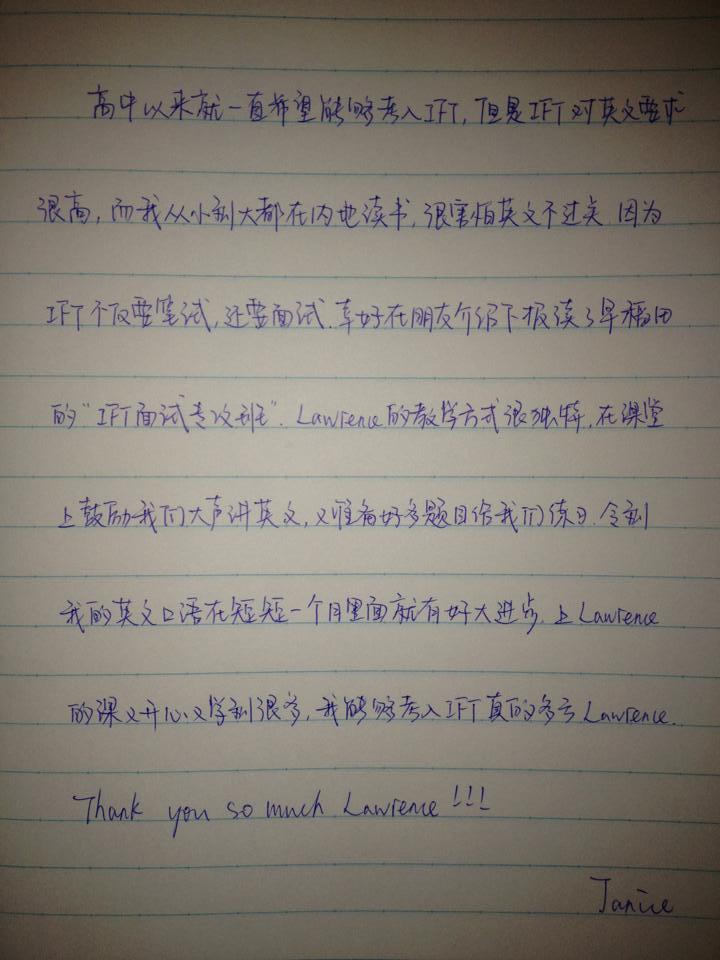 高中以来就一直希望能够考入IFT,但是IFT对英文要求
很高,而我从小到大都在内地读书,很害怕英文不过关.因为
IFT不仅要笔试,还要面试.幸好在朋友介绍下报读了早稻田
的"IFT面试专攻班".Lawrence的教学方式很独特,在课堂
上鼓励我们大声讲英文,又准备好多题目给我们练习.令到
我的英文口语在短短一个月里面就有好大进步.上Lawrence
的课又开心又学到很多,我能够考入IFT真的多亏Lawrence.
Thank you so much Lawrence!!!
Janice